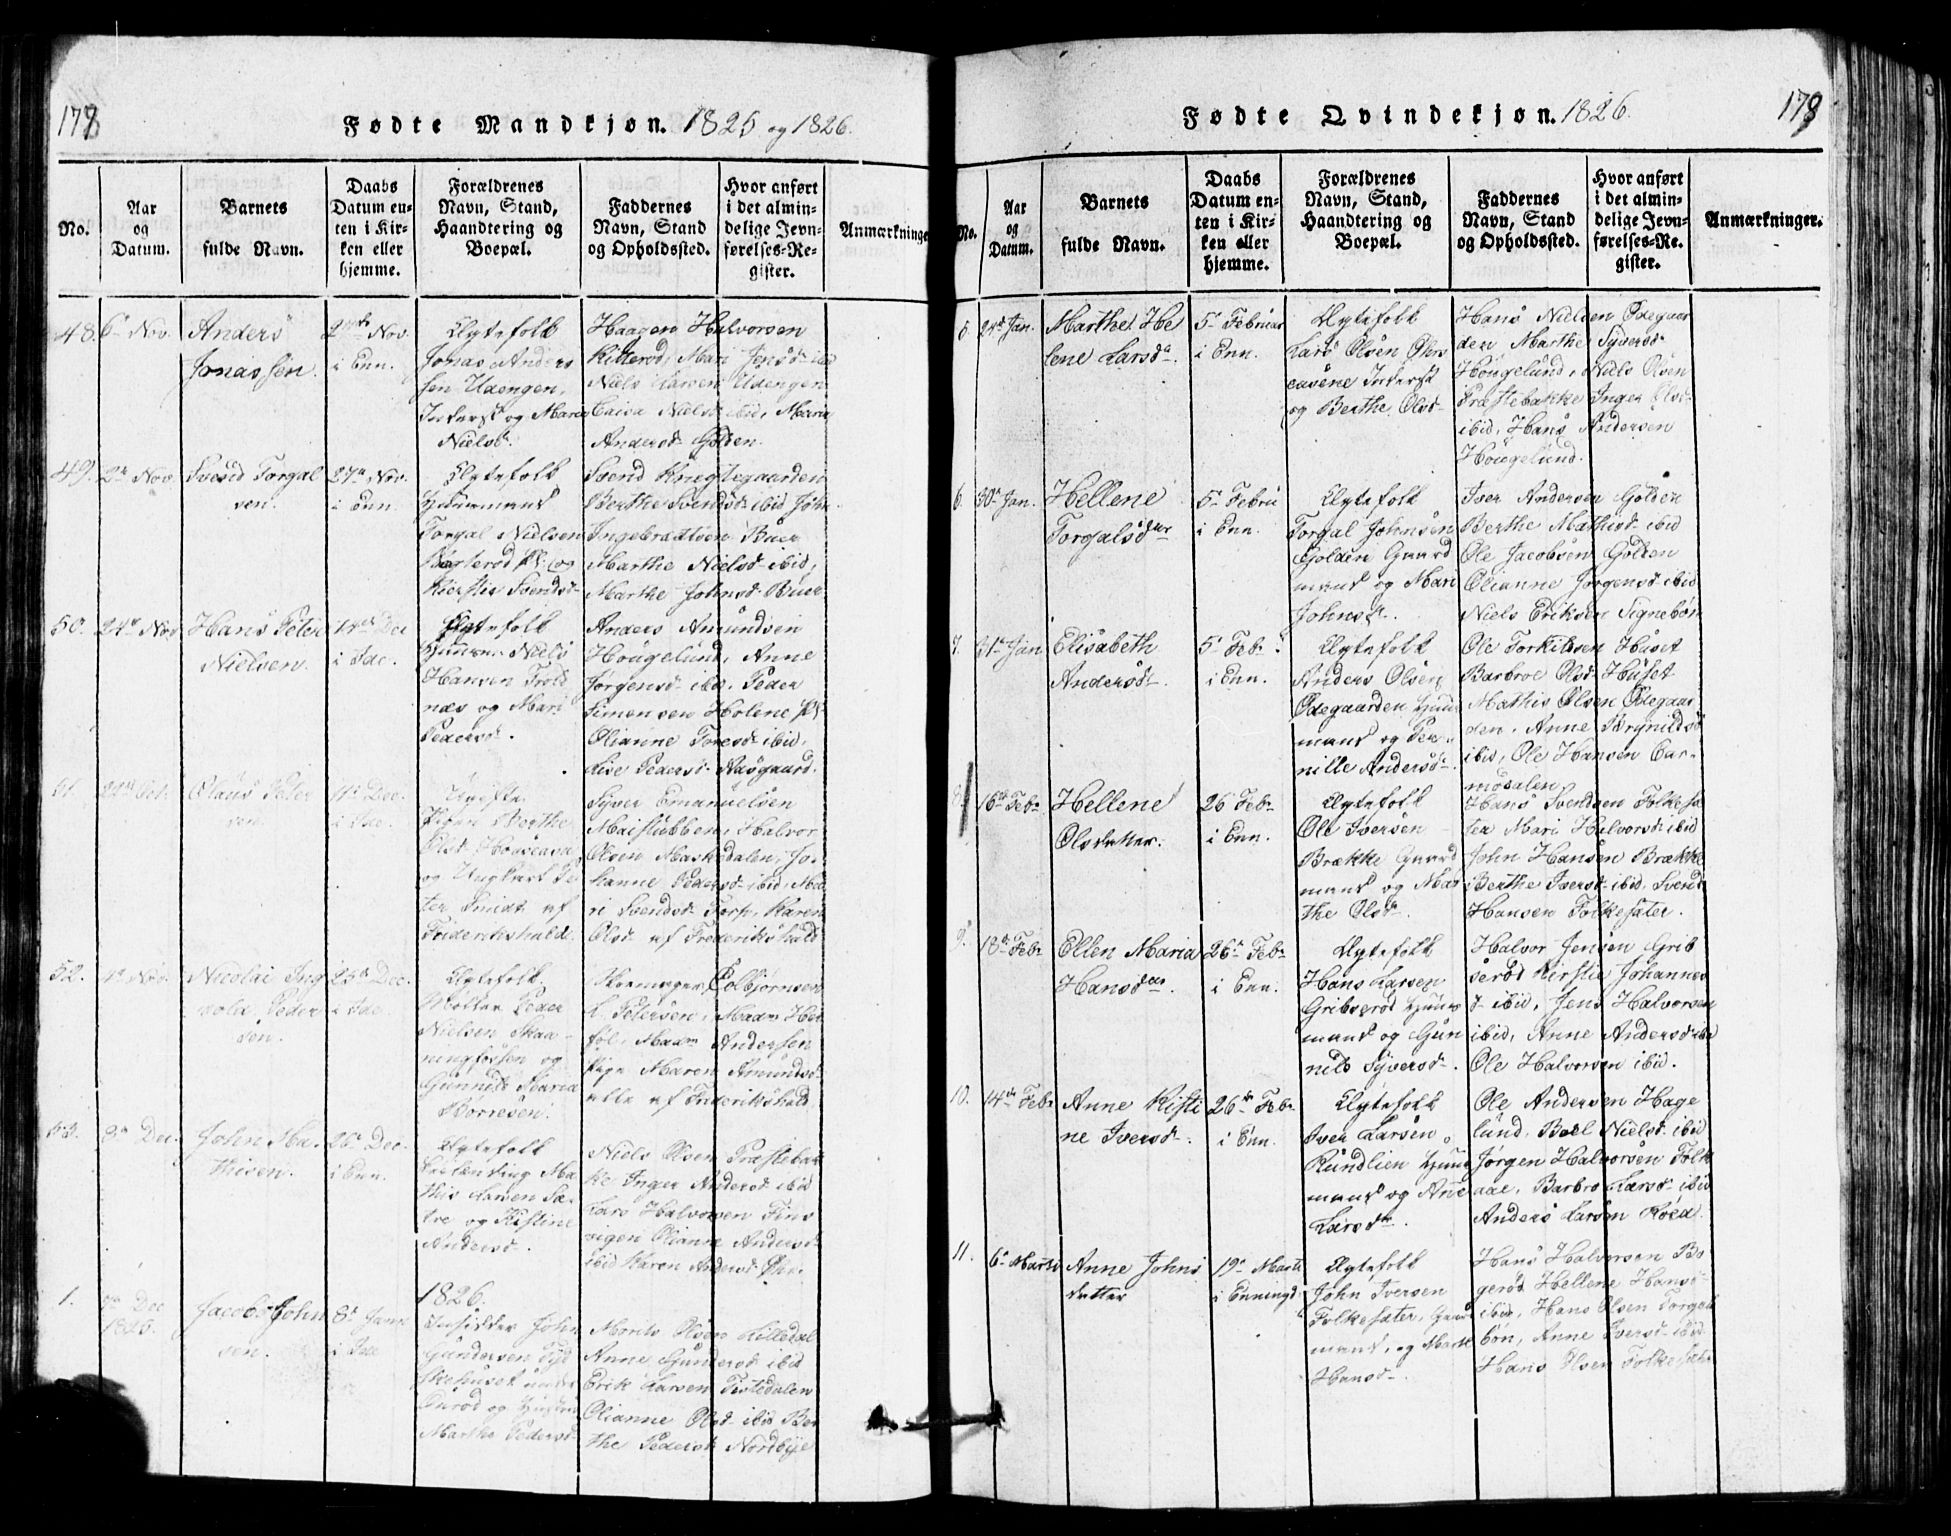 178
Fødte Mandkjøn. 1825 og 1826.
No.
Aar
og
Datum.
Barnets
fulde Navn.
Daabs
Datum en-
ten i Kir-
ken eller
hjemme.
Forældrenes
Navn, Stand,
Haandtering og
Boepæl.
Faddernes
Navn, Stand
og Opholdssted.
Hvor anført
i det almin-
delige Jevn-
førelses-Re-
gister.
Anmærkninge
48.
6te Nov.
Anders
Jonassen.
Nov.
i Enn.
Ægtefolk
Jonas Anders
sen Udengen,
Inderst og Maria
Nielsd.
Haagen Halvorsen
Kitterød, Mari Jensd ibid
Niels Larsen Udengen
Nielsd ibid, Maria
Andersd Golden.
49.
2n Nov.
Svend Torgal
sen.
27n Nov.
i Enn.
Ægtefolk
Huusmand
Torgal Nielsen
Pl. og
Kierstie Svendsd
Svend Knegtegaarden
Berthe Svendsd ibid John
Ingebradtsen Buer
Marthe Nielsd ibid,
Marthe Johnsd Buer
50.
24de Nov
Hans Peter
Nielsen.
Dec
i Ide.
Ægtefolk
Huusm. Niels
Hansen Trold
næs og Mari
Pedersd.
Anders Amundsen
Hougelund, Anne
Jørgensd ibid. Peder
Simensen Holene Pl
Olianne Toresd ibid.
Lise Pedersd Næsgaard.
51.
Oct.
Claus Peter
sen.
Dec.
i Ide.
Ugifte
Pigen Berthe
Olsd
og Ungkarl Pe
ter Smidt af
Friderikshald.
Syver Emanuelsen
Maistubben, Halvor
Olsen Maskedalen, Jo-
hanne Pedersd ibid, Ma
ri Svendsd Torp, Karen
Olsd af Frederikshald
52.
4n Nov.
Nicolai Ing
vold Peder
sen.
25n Dec.
i Ide.
Ægtefolk
Møller Peder
Nielsen Skaa-
ningfossen og
Gunnild Maria
Børresen.
Skomager Colbjørnsen
L. Petersen, Madm Her
føl, Madm Andersen
Pige Maren Amundsd
alle af Friderikshald
53.
8n Dec.
John Ma-
thisen.
26n Dec.
i Enn.
Ægtefolk
Ma
this Larsen Sæ-
tre og Kistine
Andersd.
Niels Olsen Præstebak
ke Inger Andersd ibid
Lars Halvorsen Tins
vigen Olianne Andersd
ibid Karen Andersd
1826.
1.
Dec
1825.
Jacob John
sen.
8n Janr
i Ide
Indsidder John
Gundersen Tyd
skehuset under
og Hustru
Marthe Pedersd
Morits Olsen Lilledal
Anne Gundersd ibid
Erik Larsen Tistedalen
Olianne Olsd ibid Ber
the Pedersd Nordbye
179
Fødte Qvindekjøn. 1826.
No.
Aar
og
Datum.
Barnets
fulde Navn.
Daabs
Datum en-
ten i Kir-
ken eller
hjemme.
Forældrenes
Navn, Stand,
Haandtering og
Boepæl.
Faddernes
Navn, Stand
og Opholdssted.
Hvor anført
i det almin-
delige Jevn-
førelses-Re.
gister.
Anmærkninger.
5.
24de Jan.
Marthe He
lene Larsdr.
5te Februar
i Enn.
Ægtefolk
Lars Olsen
Inderst
og Berthe Olsd
Hans Nielsen Ødegaar
den Marthe Syversd
Hougelund, Niels Olsen
Præstebakke Inger Olsd
ibid, Hans Andersen
Hougelund.
6.
30te Jan.
Hellene
Torgalsdter
5te Febru
i Enn.
Ægtefolk
Torgal Johnsen
Golden Gaard
mand og Mari
Johnsd.
Iver Andersen Golden
Berthe Mathisd ibid
Ole Jacobsen Golden
Olianne Jørgensd ibid
Niels Eriksen Signebøn
7.
31te Jan
Elisabeth
Andersd.
5te Feb.
i Enn.
Ægtefolk
Anders Olsen
Ødegaarden Huus
mand og Per-
nille Andersd.
Ole Torkildsen Huset
Barbroe Olsd Huset
Mathis Olsen Ødegaar
den, Anne Brynildsd
ibid, Ole Hansen Bar-
mosdalen.
8.
16de Febr
Hellene
Olsdatter.
26 Febr
i Enn.
Ægtefolk
Ole Iversen
Brække Gaard
mand og Mar
the Olsd.
Hans Svendsen Folkesæ
ter Mari Halvorsd ibid
John Hansen Brække
Berthe Iversd ibid, Svend
Hansen Folkesæter.
9.
18de Febr
Ellen Maria
Hansdter
26de Febr
i Enn.
Ægtefolk
Hans Larsen
Gribsrød Huus
mand og Gun
nild Syversd.
Halvor Jensen Grib
serød Kirstie Johannes
d ibid, Jens Halvorsen
ibid, Anne Andersd ibid
Ole Halvorsen ibid.
10.
14de Febr
Anne Kisti
ne Iversd.
26de Febr
i Enn.
Ægtefolk
Iver Larsen
Rundlien Huus
mand og Ane
Larsdr.
Ole Andersen Hage
lund, Boel Nielsd ibid
Jørgen Halvorsen Folk
aae, Barbro Larsd ibid
Anders Larsen Røed.
11.
6te Marts
Anne Johns
datter
19de Marts
i Enningd.
Ægtefolk
John Iversen
Folkesæter, Gaard
mand, og Marte
Hansd.
Hans Halvorsen Bø
gerød Hellene Hansd
ibid, Hans Olsen Torgals
bøn, Anne Iversd ibid
Hans Olsen Folkesæter